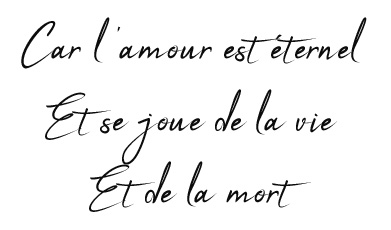 Car l'amour est éternel
Et se joue de la vie
Et de la mort